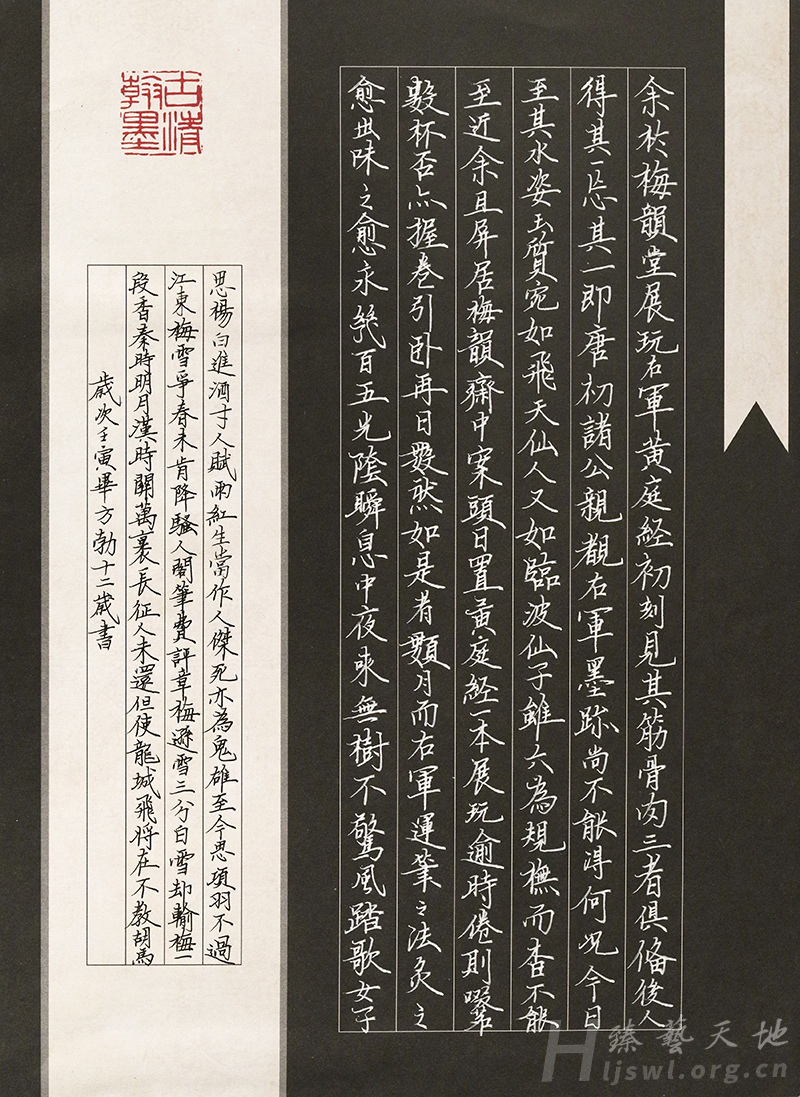 余於梅韻堂展玩右軍黃庭經初刻見其筋骨肉三者俱備後人
得其一忘其一即唐初諸公親覩右軍墨跡尚不能得何況今日
至其水姿玉質宛如飛天仙人又如臨波仙子雖六為規橅而杳不能
至近余且屏居梅韻齋中案頭日置黃庭經一本展玩逾時倦則啜茗
數杯否亦握卷引卧再日數然如是者類月而右軍運筆之法灸之
愈出味之愈永 百五光陰瞬息中夜來無樹不驚風踏歌女子
古清翰墨
思楊白進酒寸人賦雨紅生當作人傑死亦為鬼雄至今思項羽不過
江東梅雪爭春未肯降騷人閣筆費評章梅遜雪三分白雪却輸梅一
段香秦時明月漢時關萬裏長征人未還但使龍城飛將在不教胡馬
歲次壬寅畢方勃十二歲書
臻藝天地
Hljswl.org.cn